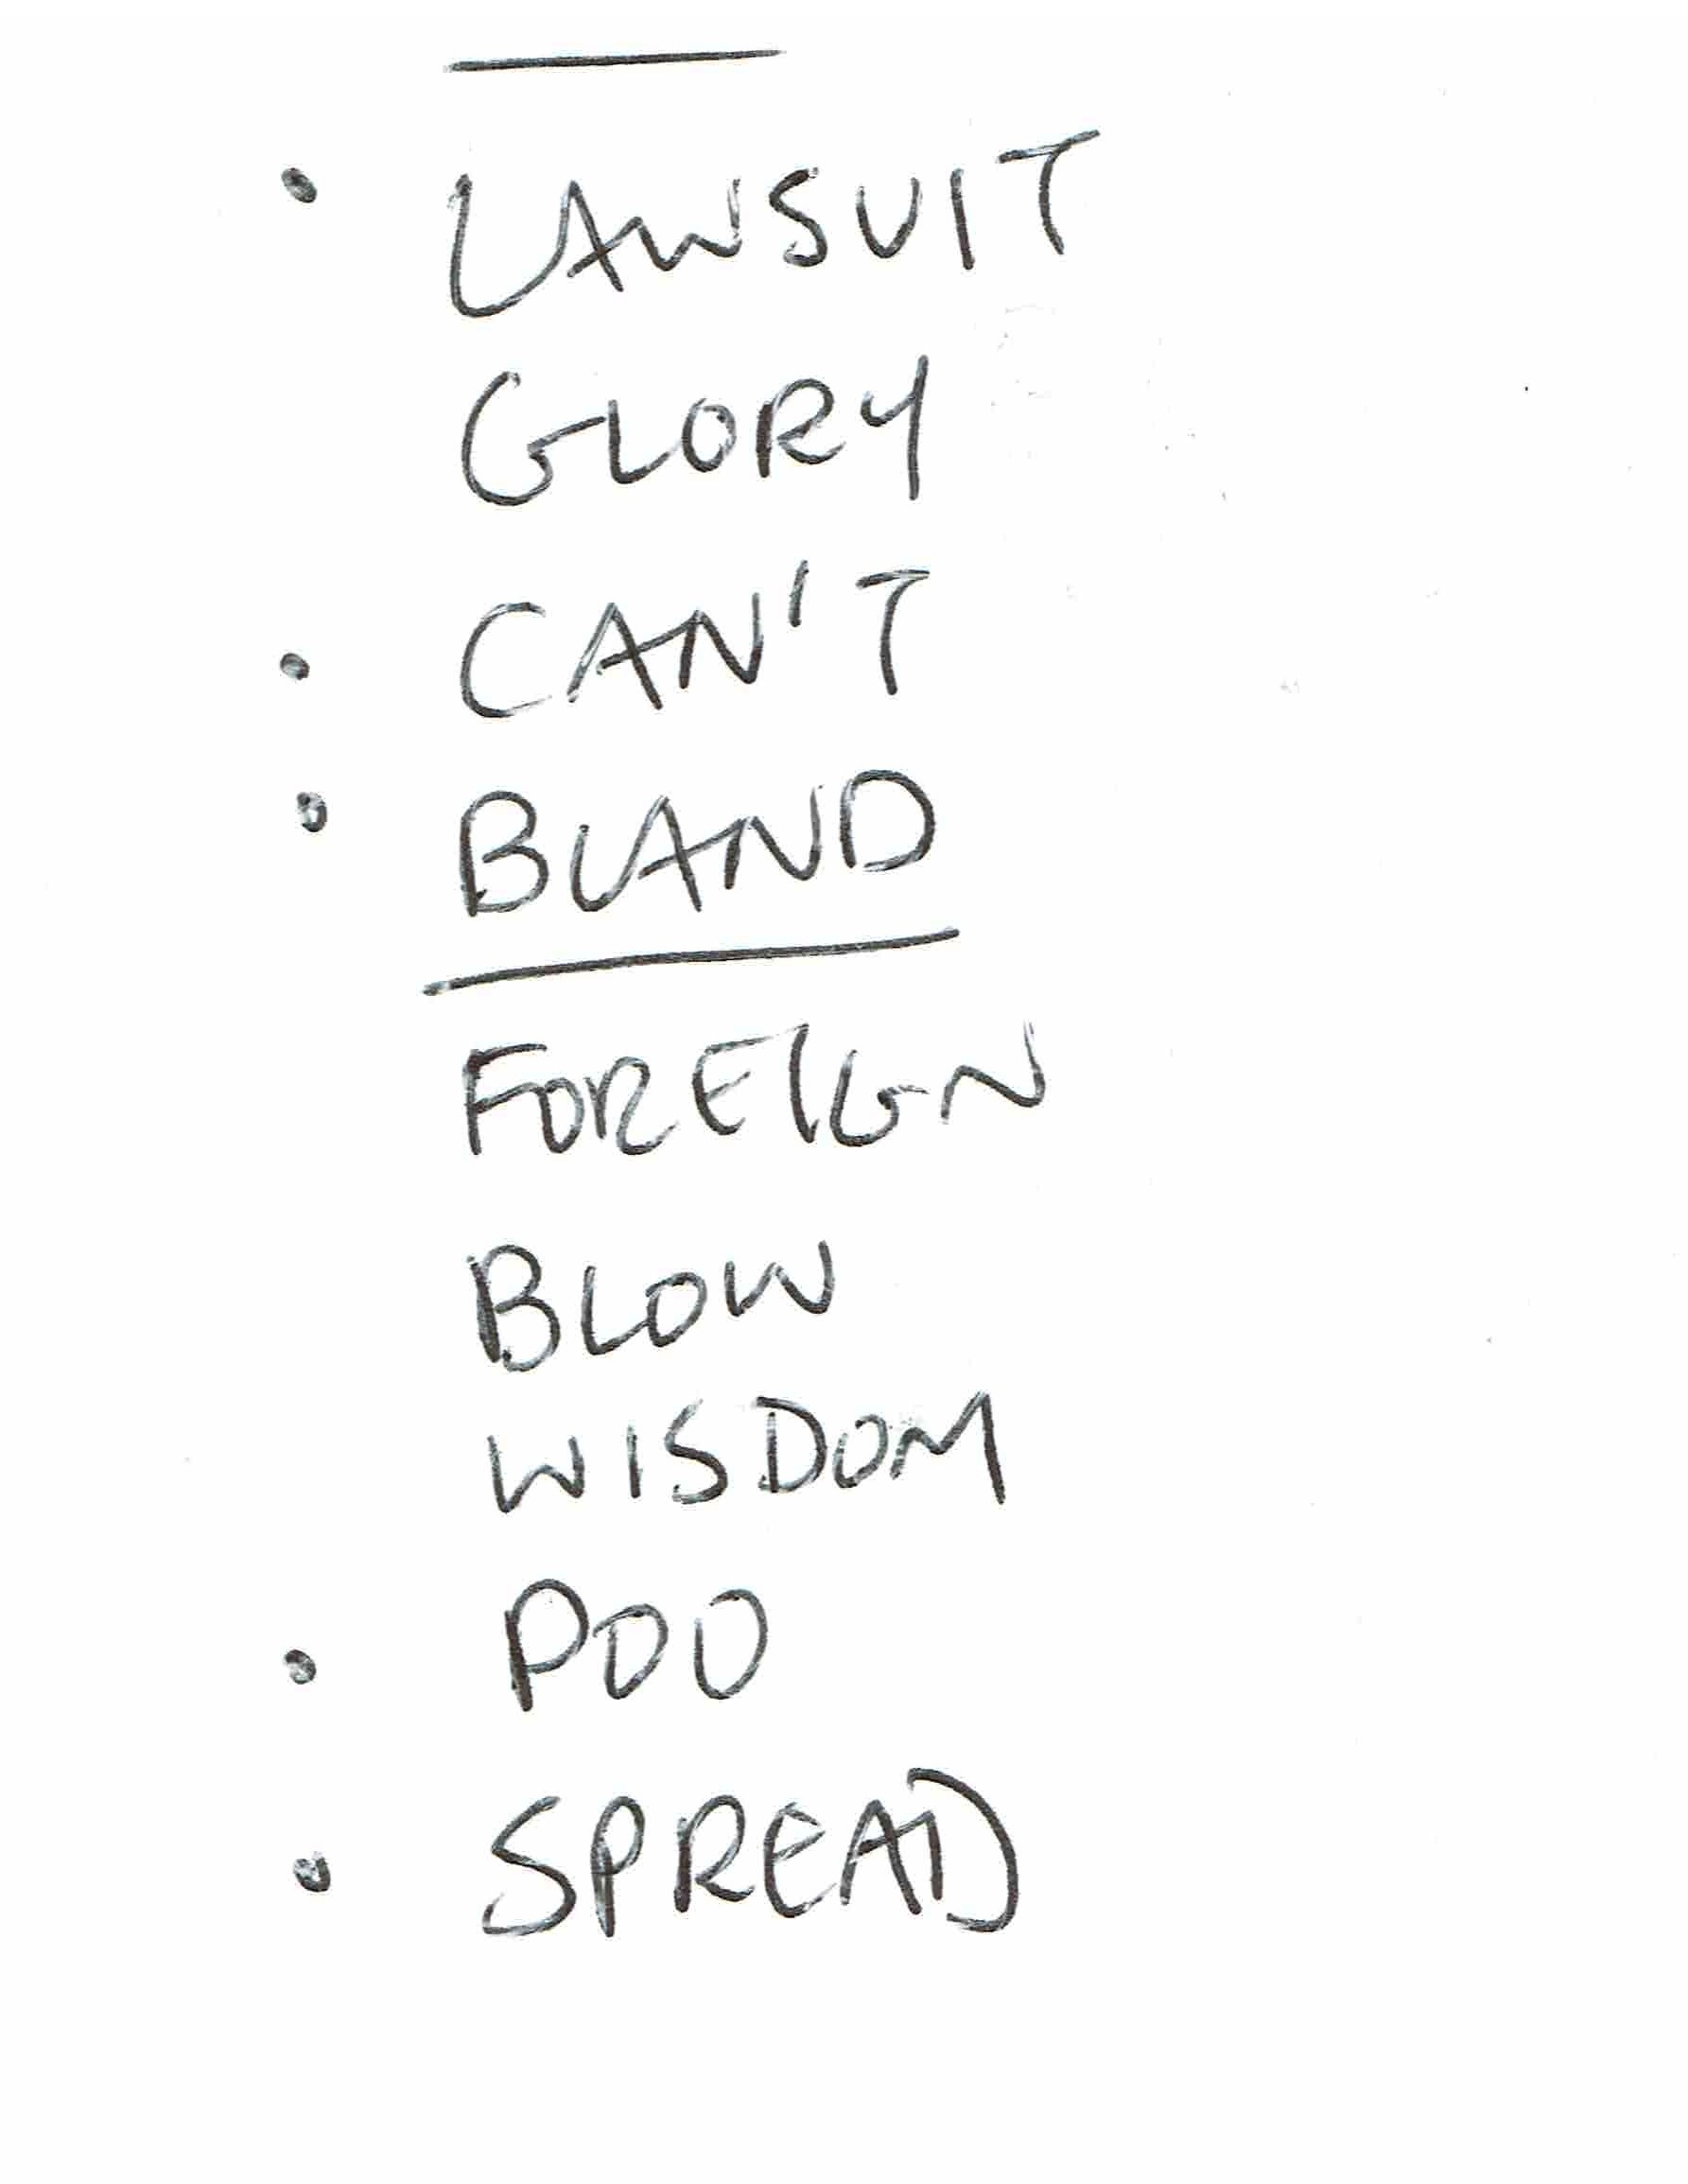 • LAWSUIT
GLORY
• CAN'T
• BLAND
FOREIGN
BLOW
WISDOM
• POO
• SPREAD